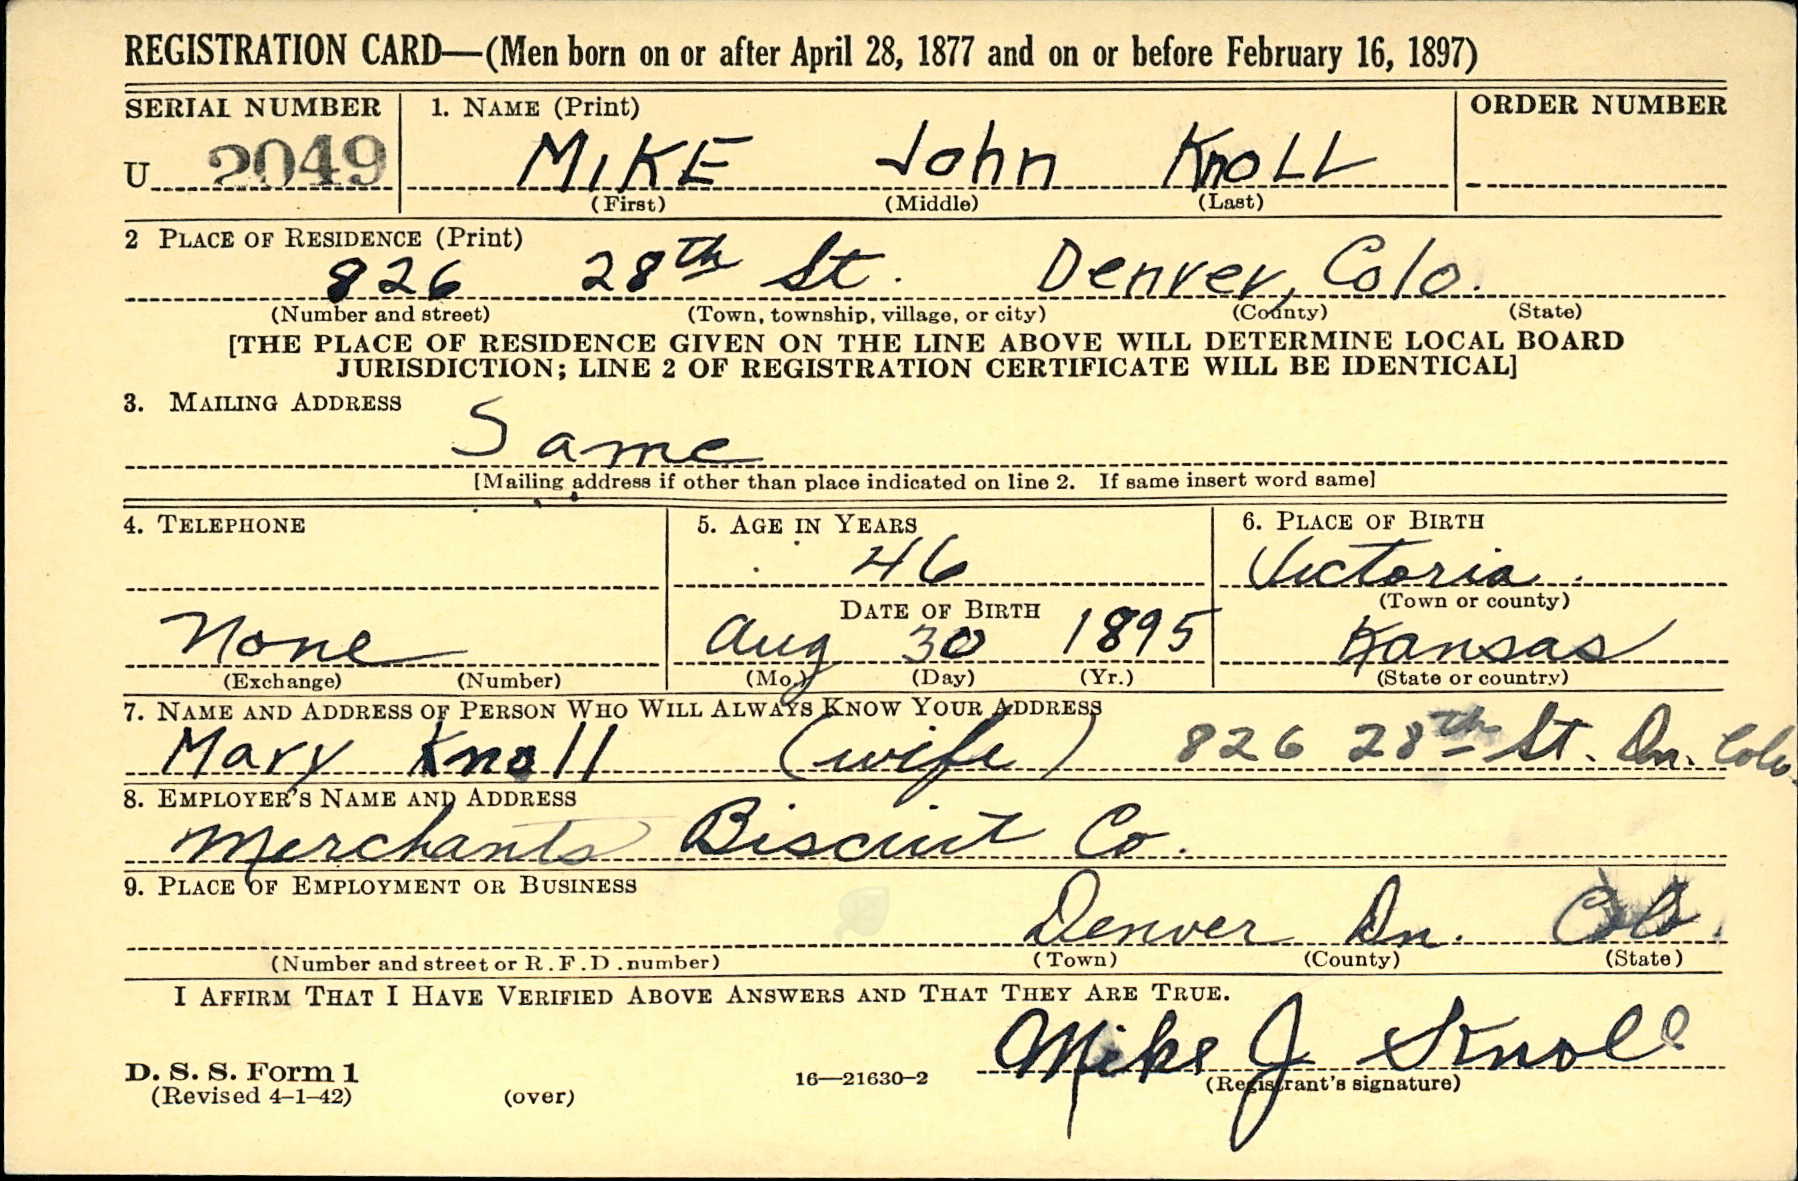 REGISTRATION CARD—(Men born on or after April 28, 1877 and on or before February 16, 1897)
SERIAL NUMBER 1. NAME (Print) ORDER NUMBER
U 2049 MIKE John KnoLL
(First) (Middle) (Last)
2 PLACE OF RESIDENCE (Print)
826 28th St. Denver, Colo.
(Number and street) (Town, township, village, or city) (County) (State)
[THE PLACE OF RESIDENCE GIVEN ON THE LINE ABOVE WILL DETERMINE LOCAL BOARD
JURISDICTION; LINE 2 OF REGISTRATION CERTIFICATE WILL BE IDENTICAL]
3. MAILING ADDRESS
Same
[Mailing address if other than place indicated on line 2. If same insert word same]
4. TELEPHONE 5. AGE IN YEARS 6. PLACE OF BIRTH
46 Victoria
(Town or county)
DATE OF BIRTH
None Aug 30 1895 Kansas
(Exchange) (Number) (Mo.) (Day) (Yr.) (State or country)
7. NAME AND ADDRESS OF PERSON WHO WILL ALWAYS KNOW YOUR ADDRESS
Mary Knoll (wife) 826 28th St. Dn. Colo.
8. EMPLOYER'S NAME AND ADDRESS
Merchants Biscuit Co.
9. PLACE OF EMPLOYMENT OR BUSINESS
Denver Dn. Colo.
(Number and street or R.F.D. number) (Town) (County) (State)
I AFFIRM THAT I HAVE VERIFIED ABOVE ANSWERS AND THAT THEY ARE TRUE.
Mike J Knoll
D. S. S. Form 1
(Revised 4-1-42) (over) 16—21630-2 (Registrant's signature)